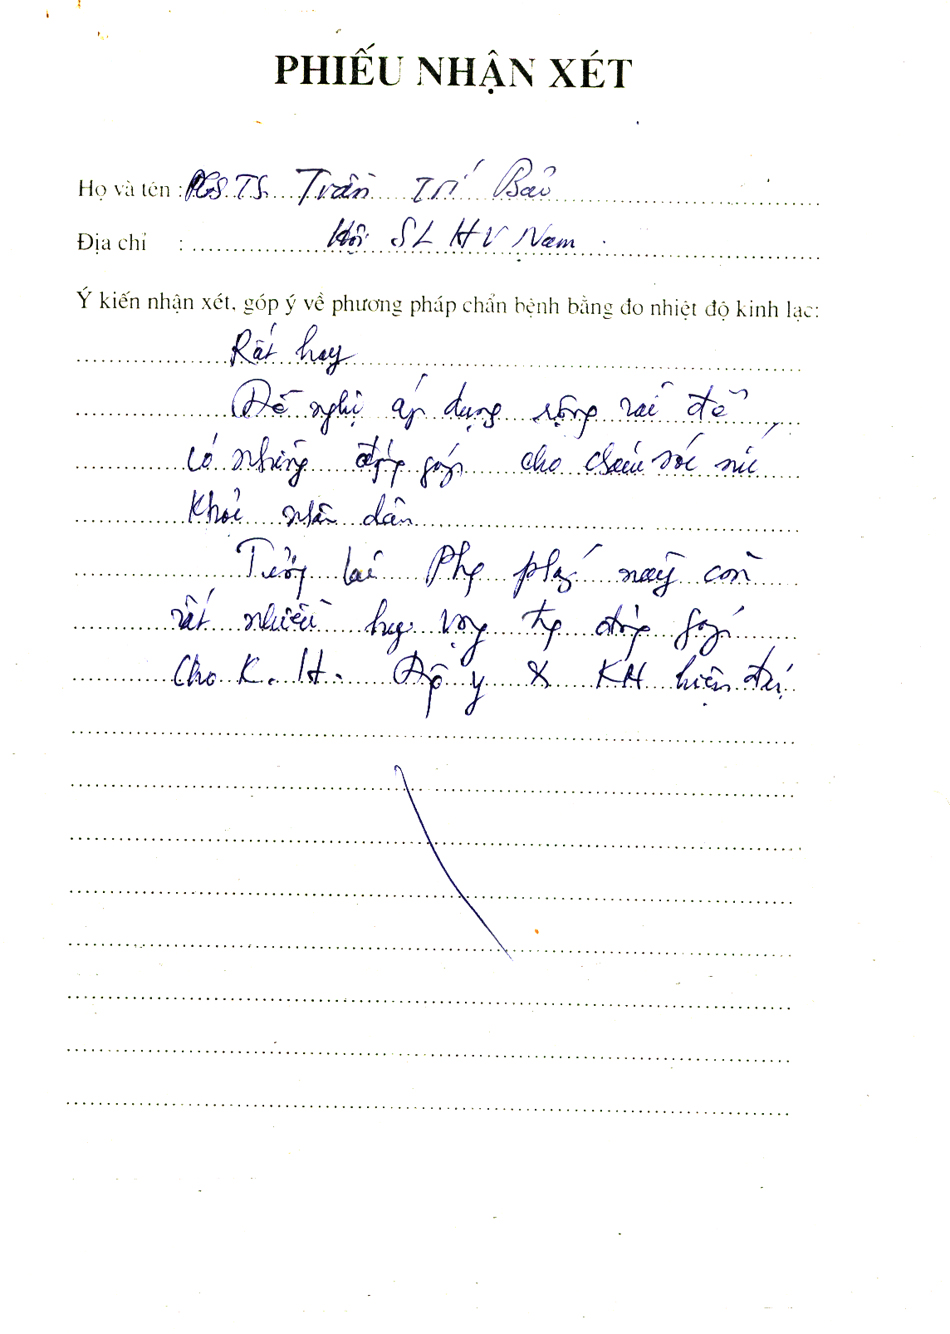 PHIẾU NHẬN XÉT
Họ và tên : PGS.TS. Trần Trí Bảo
Địa chỉ : Hội SL H V Nam
Ý kiến nhận xét, góp ý về phương pháp chẩn bệnh bằng đo nhiệt độ kinh lạc:
Rất hay
Đề nghị áp dụng rộng rãi để
có những đóng góp cho chăm sóc sức
khoẻ nhân dân
Tương lai phg pháp này còn
rất nhiều hy vọng đóng góp
cho K.H. Đông y & KH hiện đại